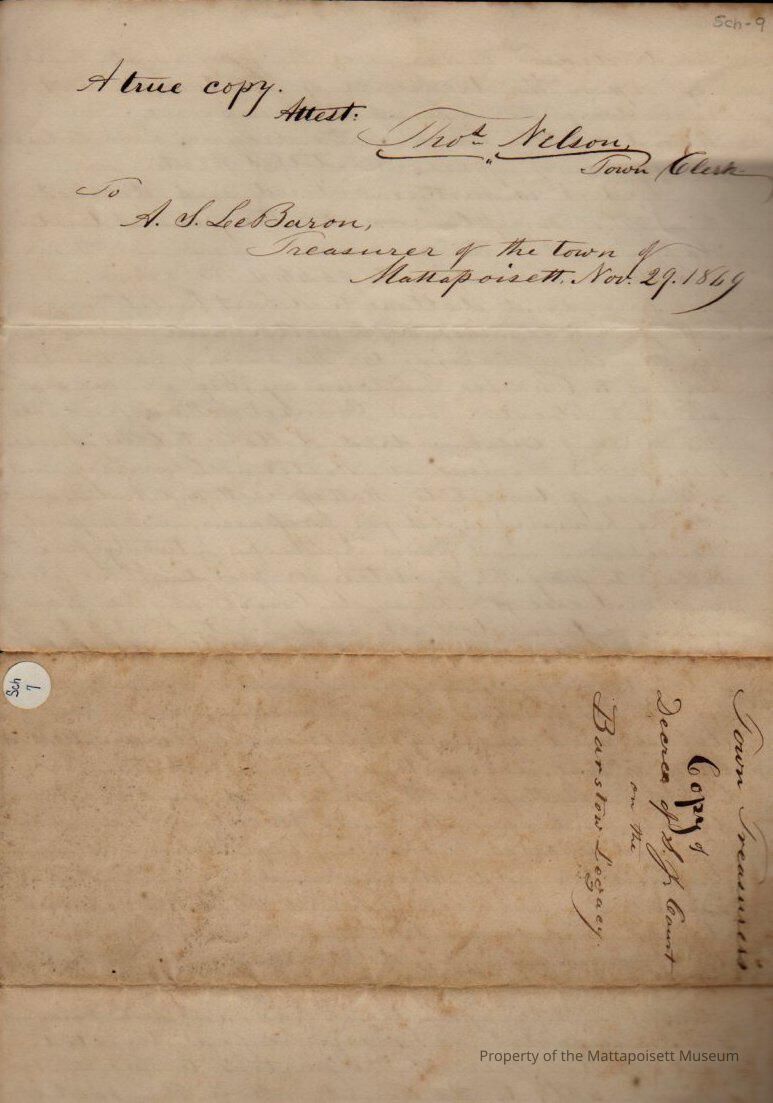 Sch-9
A true copy.
Attest:
Thos. Nelson,
Town Clerk
To
A. S. LeBaron,
Treasurer of the town of
Mattapoisett. Nov. 29. 1869
Sch
7
Town Treasurer's
Copy of
Decree of S. J. Court
on the
Barstow Legacy.
Property of the Mattapoisett Museum